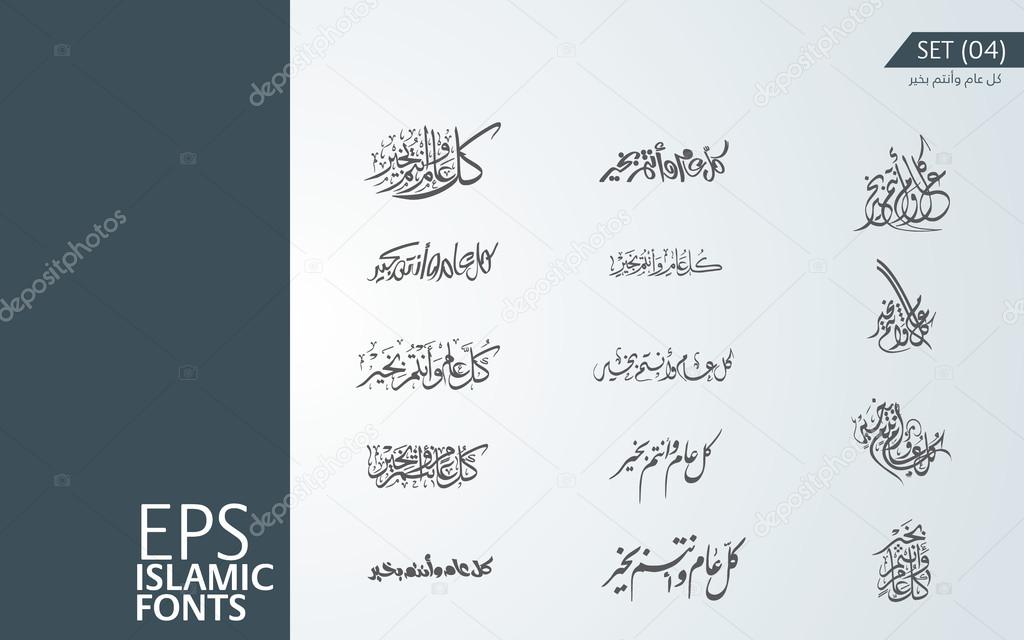 SET (04)
كل عام وأنتم بخير
كل عام وأنتم بخير
كل عام وأنتم بخير
كل عام وأنتم بخير
كل عام وأنتم بخير
كل عام وأنتم بخير
كُل عَامٍ وَأَنتُم بِخَيْرٍ
كل عام وأنتم بخير
كُلّ عَام وَأَنْتُمْ بِخَيْر
كل عام وأنتم بخير
كل عام وأنتم بخير
كل عام وأنتم بخير
كل عام وأنتم بخير
كل عام وأنتم بخير
كل عام وأنتم بخير
EPS
ISLAMIC
FONTS
depositphotos